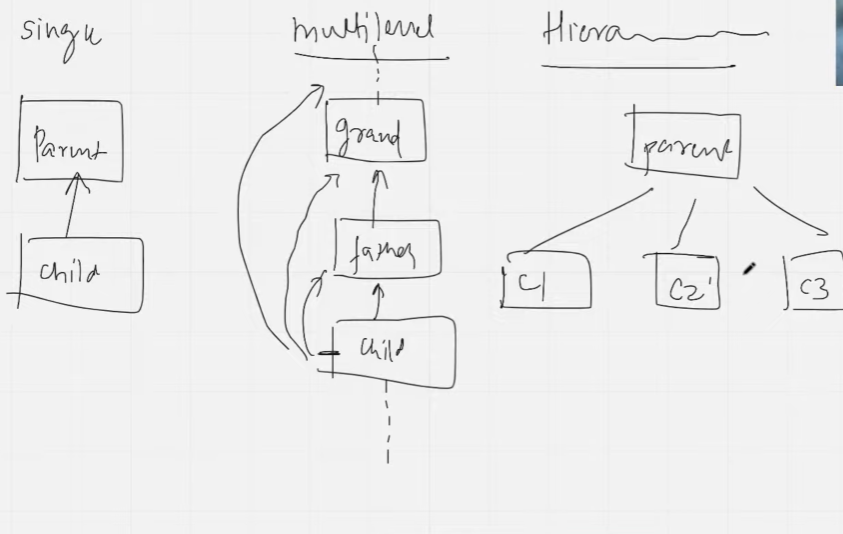 Single
Parent
Child
multilevel
grand
father
child
Hiera
parent
C1
C2
C3